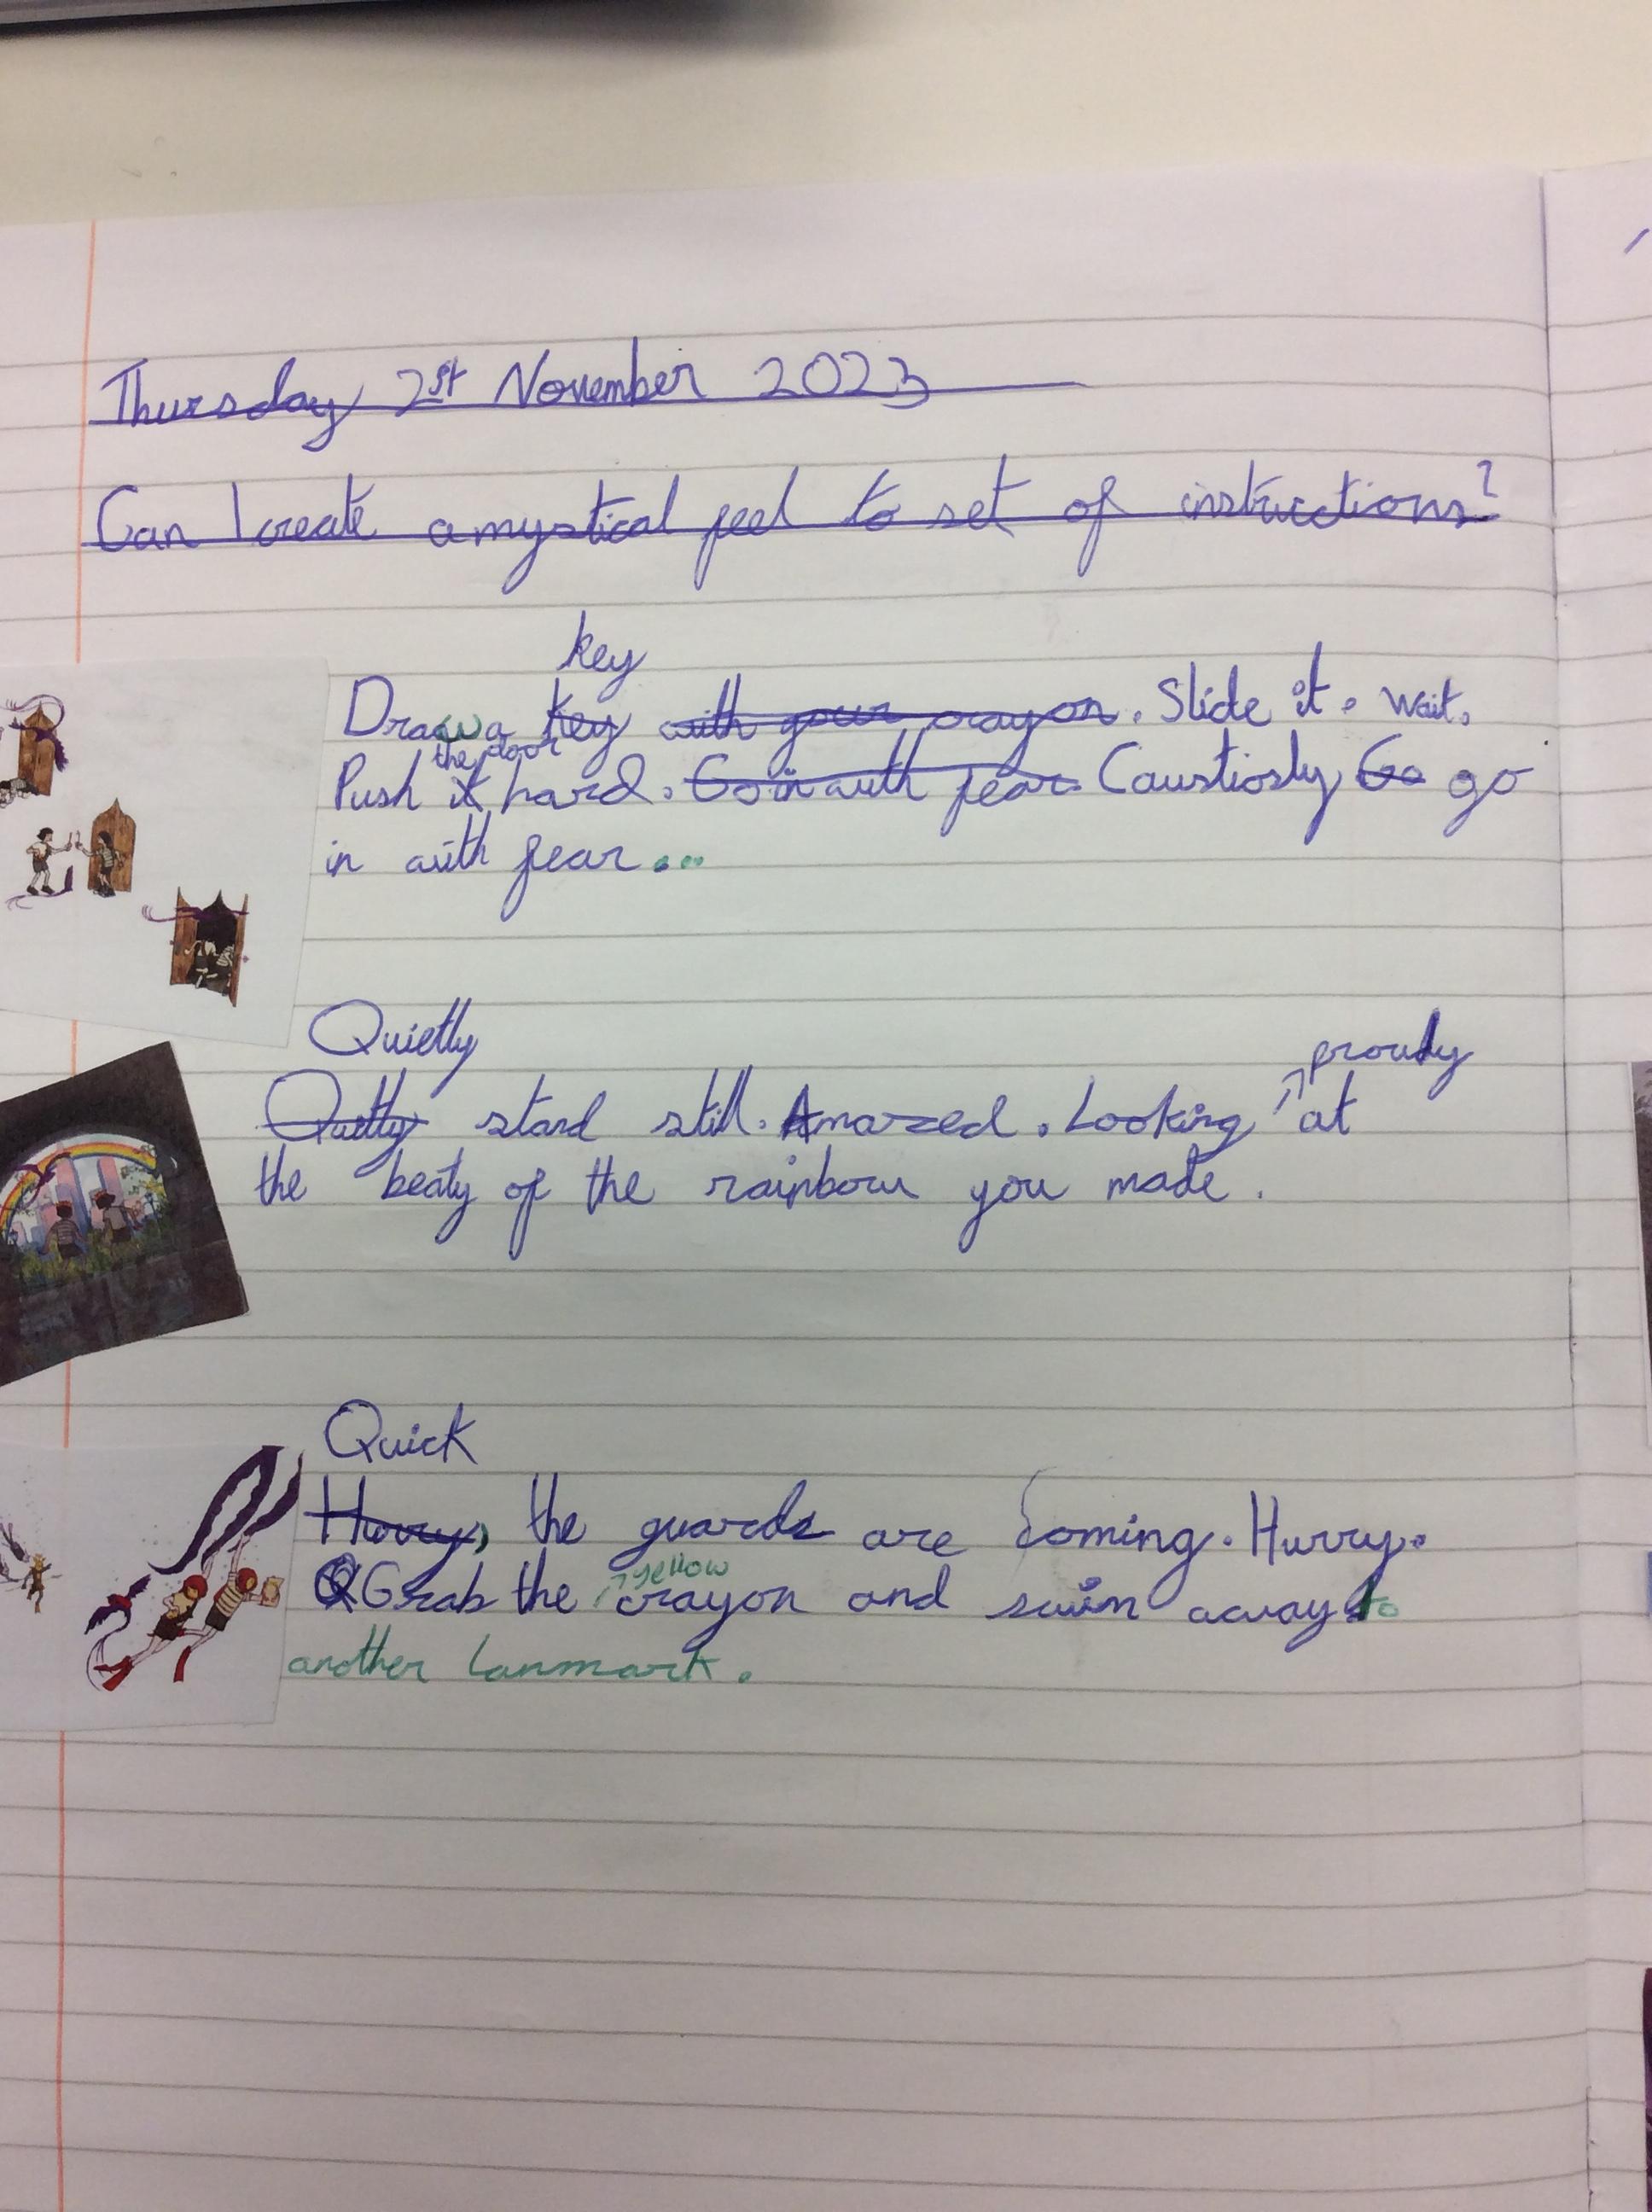 Thursday 2st November 2023
Can I create a mystical feel to set of instructions?
key
Draw a key with your crayon. Slide it. Wait.
the door
Push it hard. Go in with fear. Caustiosly Go go
in with fear...
Quietly
proudly
Quitly stand still. Amazed. Looking at
the beaty of the rainbow you made.
Quick
Hurry, the guards are coming. Hurry.
yellow
Grab the crayon and swim away to
another lanmark.